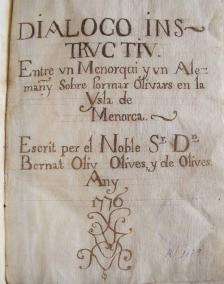 DIALOGO INS~
TRUCTIU.
Entre vn Menorqui y vn Ale-
mañy Sobre formar Olivars en la
Ysla de
Menorca.~
Escrit per el Noble Sr. Dn.
Bernat Oliv Olives, y de Olives.
Any
1776